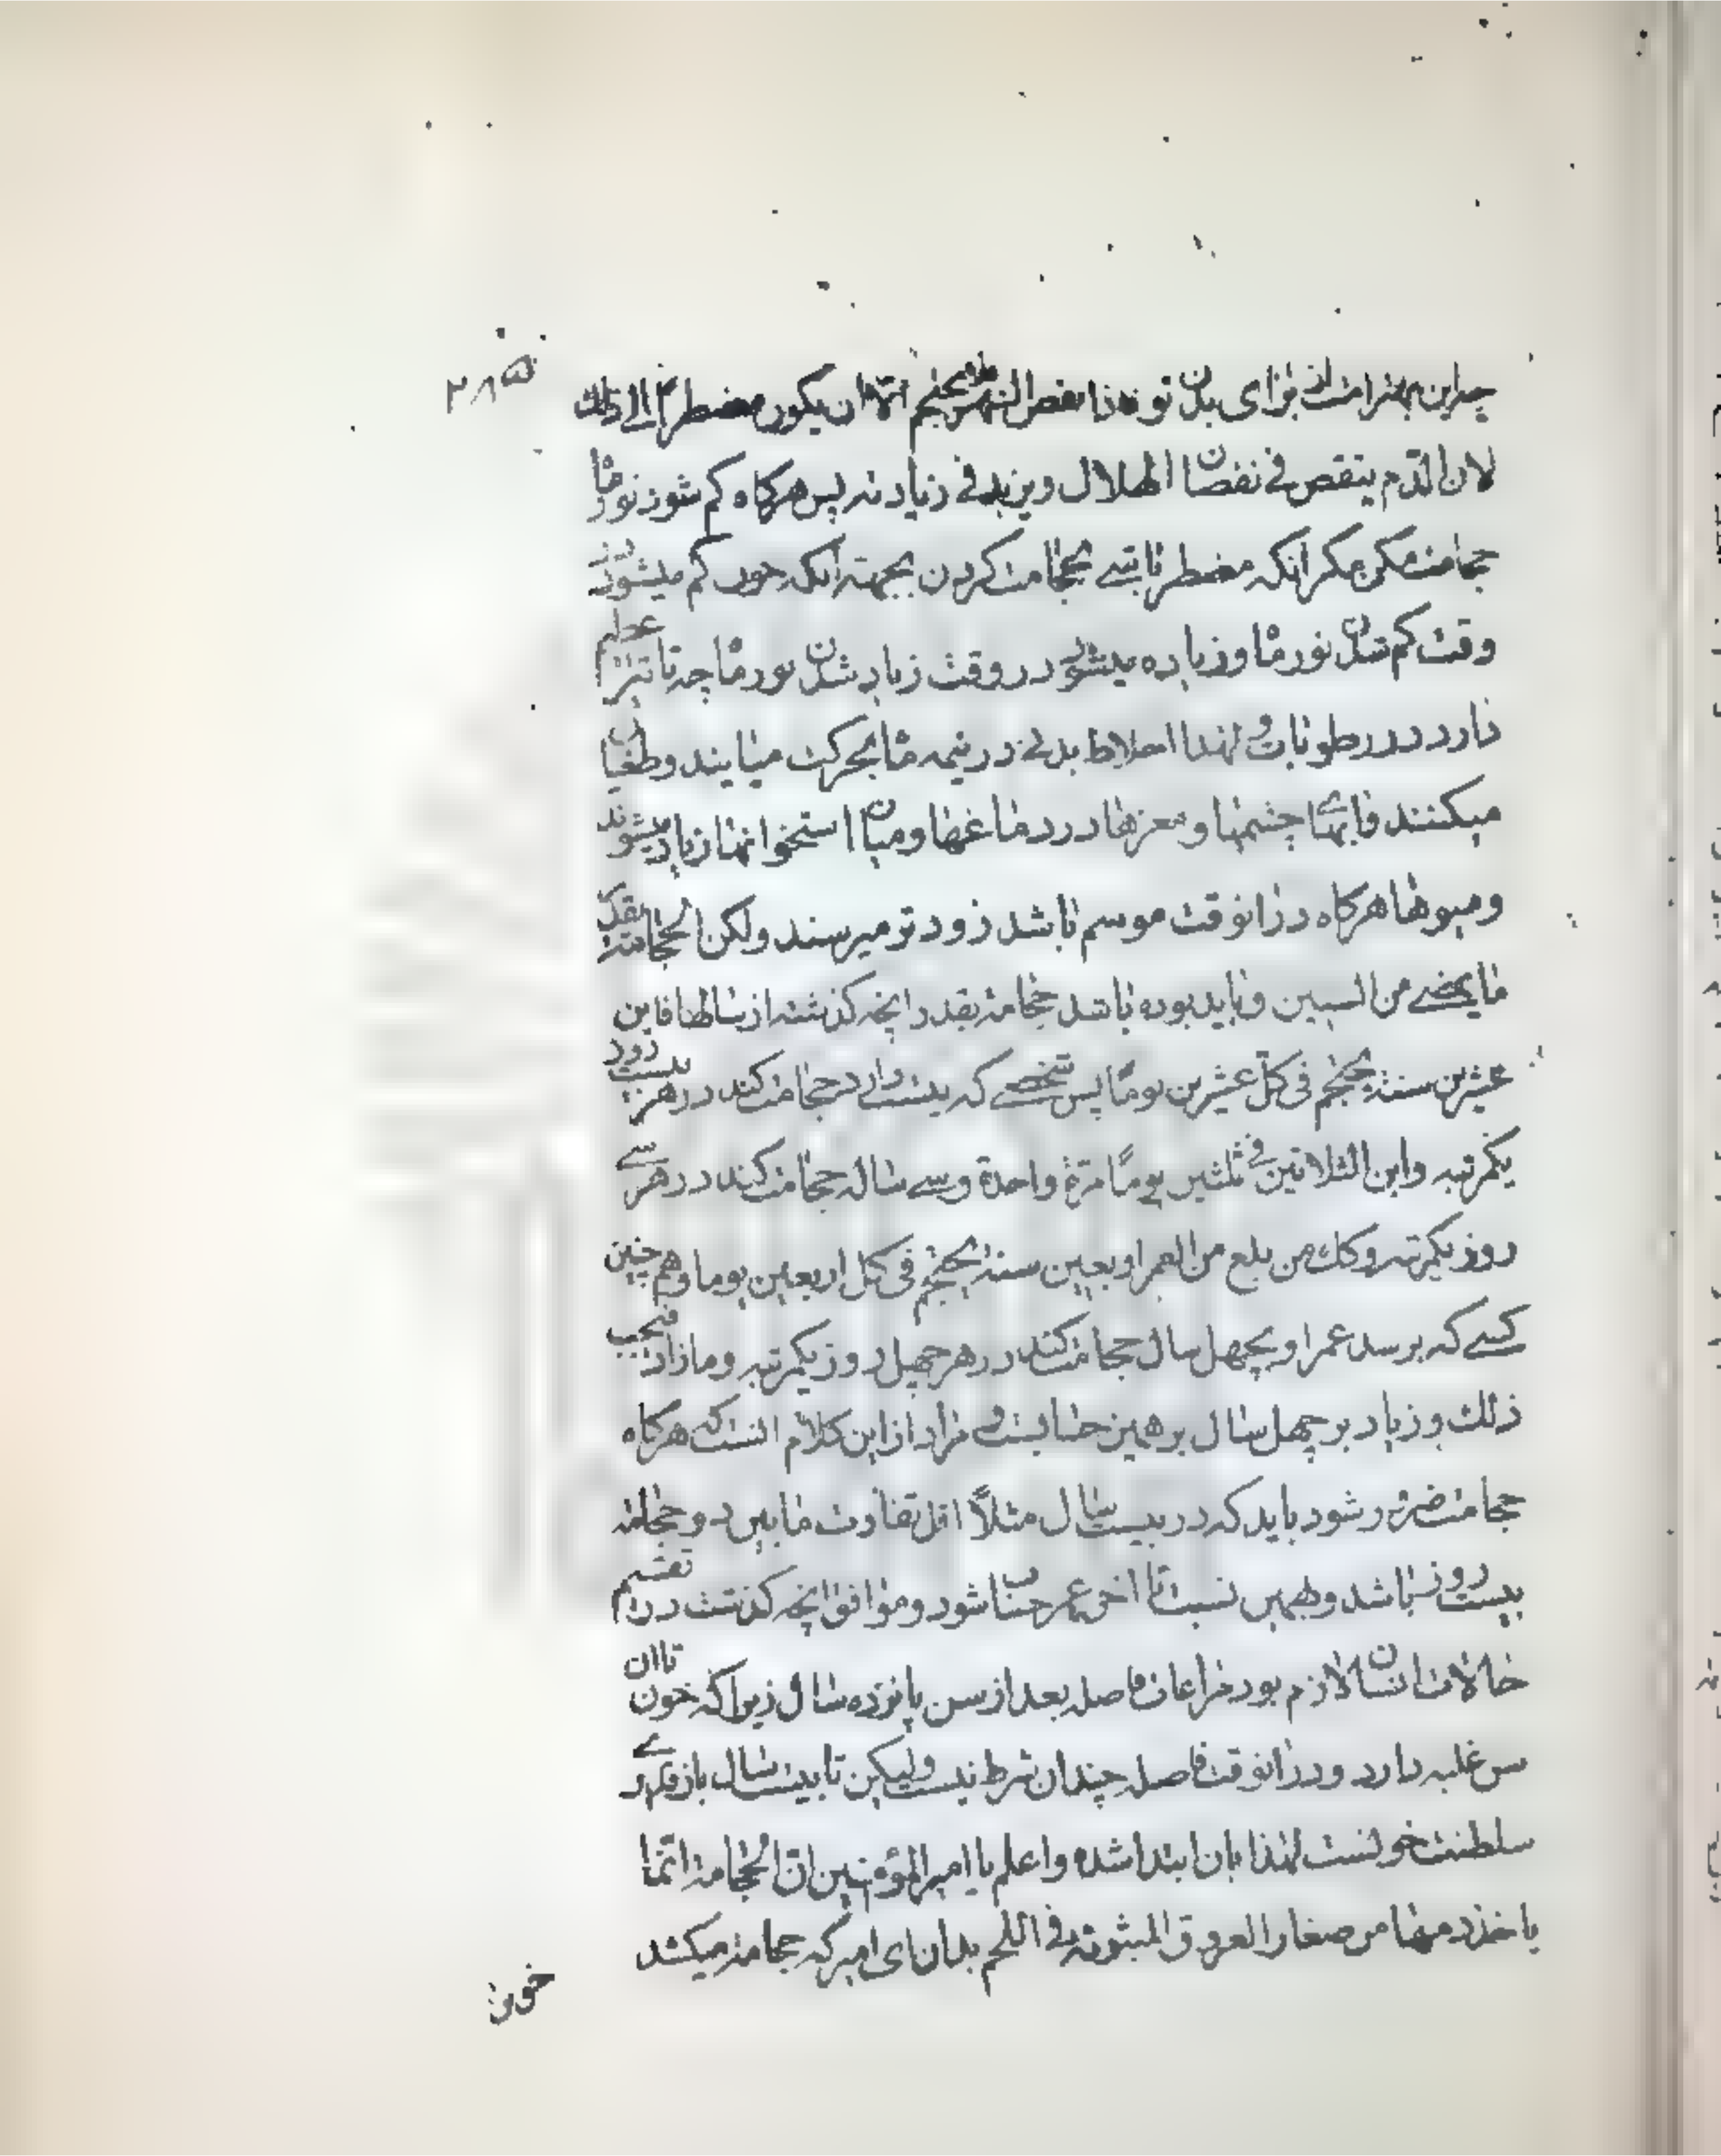 ۲۸۵
چه این بهتر است از برای بدن تو فاذا نقص الشهر فلا تحتجم الا ان یکون مضطرا الی ذلک
لان الدم ینقص فی نقصان الهلال ویزید فی زیادته پس هرکاه کم شود نور ماه
حجامت مکن مکر انکه مضطر باشی بحجامت کردن بجهته انکه خون کم میشود در
وقت کم شدن نور ماه و زیاده میشود در وقت زیاد شدن نور ماه چه تاثیر عظیم
دارد در رطوبات و لهذا اخلاط بدنی در نیمه ماه بحرکت میایند و طغیان
میکنند و ابهای چشمها و مغزها در دماغها و میان استخوانها زیاد میشوند
و میوها هرکاه در انوقت موسم باشد زودتر میرسند ولکن الحجامة بقدر
ما یمضی من السنین و باید بوده باشد حجامة بقدر انچه کذشته از سالها فابن
عشرین سنة یحتجم فی کل عشرین یوما پس شخصی که بیست دارد حجامت کند در هر بیست روز
یکمرتبه وابن الثلاثین فی ثلثین یوما مرة واحدة و سی ساله حجامت کند در هر سی
روز یکمرتبه وکذلک من بلغ من العمر اربعین سنة یحتجم فی کل اربعین یوما و هم چنین
کسی که برسد عمر او بچهل سال حجامت کند در هر چهل روز یکمرتبه وما زاد فبحسب
ذلک و زیاد بر چهل سال بر همین حسابست و مراد از این کلام انست که هرکاه
حجامت ضرور شود باید که در بیست سال مثلاً اقل تفاوت مابین دو حجامة
بیست روز باشد و بهمین نسبت تا اخر عمر حساب شود و موافق انچه کذشت در تقسیم
حالات انسان لازم بود مراعات فاصله بعد از سن پانزده سال زیرا که خون تا ان
سن غلبه دارد و در انوقت فاصله چندان شرط نیست ولیکن تا بیست سال باز قدری
سلطنت خونست لهذا بان ابتدا شده واعلم یا امیر المؤمنین ان الحجامة انما
یاخذ دمها من صغار العروق المبثوثة فی اللحم بدان ای امیر که حجامة میکشد
خون